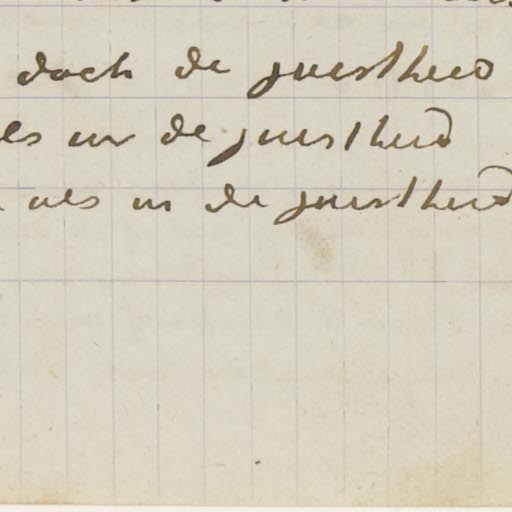 doch de juistheid
als in de juistheid
als in de juistheid